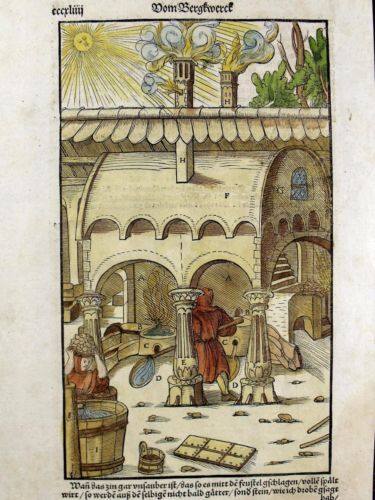 cccxliiij
Vom Bergkwerck
H
H
H
F
G
A
E
D
D
I
Wañ das zin gar vnsauber ist/das so es mitt dē feustel gschlagen/volle spält
wirt/so werdē auß dē selbige nicht bald gåtter/sond stein/wie ich drobē gsagt
hab/